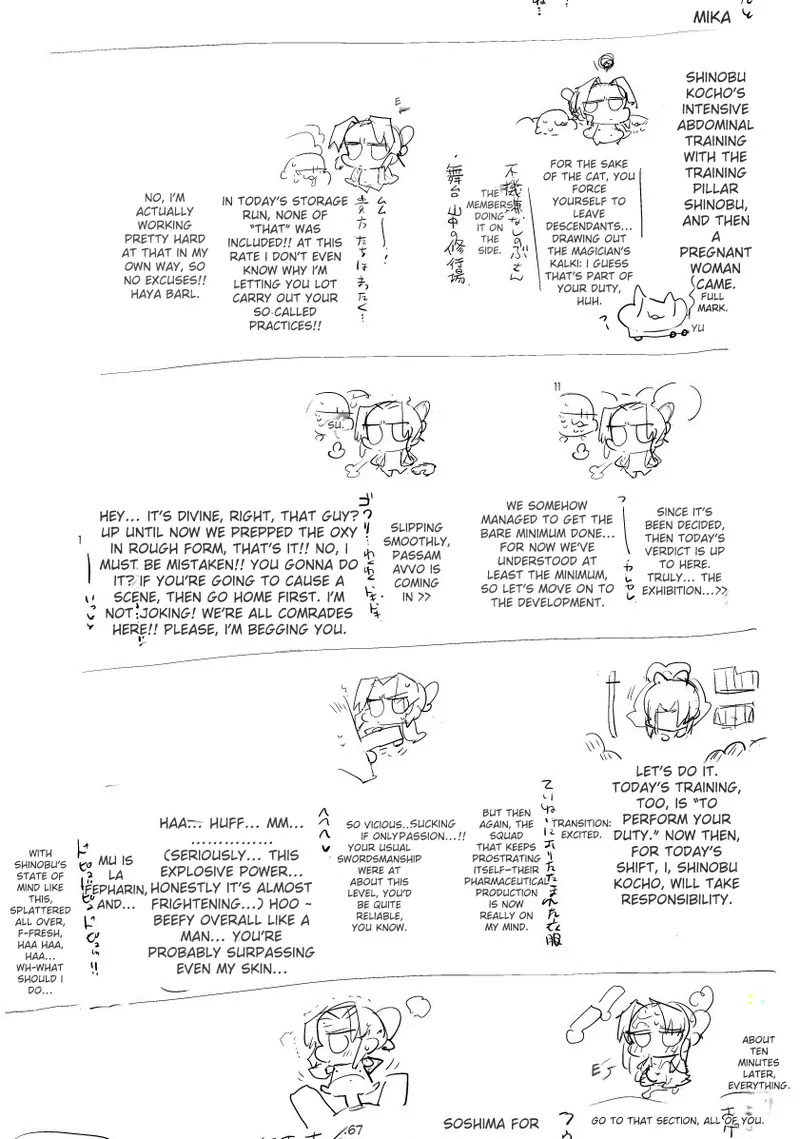 MIKA
SHINOBU
KOCHO'S
INTENSIVE
ABDOMINAL
TRAINING
WITH THE
TRAINING
PILLAR
SHINOBU,
AND THEN
A
PREGNANT
WOMAN
CAME.
FULL
MARK.
YU
FOR THE SAKE
OF THE CAT, YOU
FORCE
YOURSELF TO
LEAVE
DESCENDANTS...
DRAWING OUT
THE MAGICIAN'S
KALKI: I GUESS
THAT'S PART OF
YOUR DUTY,
HUH.
不機嫌なしのぶさん
THE
MEMBERS
DOING
IT ON
THE
SIDE.
・舞台 山中の修行場
E
ムムー!
貴方たちはまったく…
IN TODAY'S STORAGE
RUN, NONE OF
"THAT" WAS
INCLUDED!! AT THIS
RATE I DON'T EVEN
KNOW WHY I'M
LETTING YOU LOT
CARRY OUT YOUR
SO-CALLED
PRACTICES!!
NO, I'M
ACTUALLY
WORKING
PRETTY HARD
AT THAT IN MY
OWN WAY, SO
NO EXCUSES!!
HAYA BARL.
11
SINCE IT'S
BEEN DECIDED,
THEN TODAY'S
VERDICT IS UP
TO HERE.
TRULY... THE
EXHIBITION...>>
WE SOMEHOW
MANAGED TO GET THE
BARE MINIMUM DONE...
FOR NOW WE'VE
UNDERSTOOD AT
LEAST THE MINIMUM,
SO LET'S MOVE ON TO
THE DEVELOPMENT.
SU.
SLIPPING
SMOOTHLY,
PASSAM
AVVO IS
COMING
IN >>
HEY... IT'S DIVINE, RIGHT, THAT GUY?
UP UNTIL NOW WE PREPPED THE OXY
IN ROUGH FORM, THAT'S IT!! NO, I
MUST BE MISTAKEN!! YOU GONNA DO
IT? IF YOU'RE GOING TO CAUSE A
SCENE, THEN GO HOME FIRST. I'M
NOT JOKING! WE'RE ALL COMRADES
HERE!! PLEASE, I'M BEGGING YOU.
1
LET'S DO IT.
TODAY'S TRAINING,
TOO, IS "TO
PERFORM YOUR
DUTY." NOW THEN,
FOR TODAY'S
SHIFT, I, SHINOBU
KOCHO, WILL TAKE
RESPONSIBILITY.
TRANSITION:
EXCITED.
ていねいにおりたたまれた衣服
BUT THEN
AGAIN, THE
SQUAD
THAT KEEPS
PROSTRATING
ITSELF-THEIR
PHARMACEUTICAL
PRODUCTION
IS NOW
REALLY ON
MY MIND.
SO VICIOUS..SUCKING
IF ONLYPASSION...!!
YOUR USUAL
SWORDSMANSHIP
WERE AT
ABOUT THIS
LEVEL, YOU'D
BE QUITE
RELIABLE,
YOU KNOW.
HAA... HUFF... MM...
................
(SERIOUSLY... THIS
EXPLOSIVE POWER...
HONESTLY IT'S ALMOST
FRIGHTENING...) HOO ~
BEEFY OVERALL LIKE A
MAN... YOU'RE
PROBABLY SURPASSING
EVEN MY SKIN...
MU IS
LA
FEPHARIN,
AND...
WITH
SHINOBU'S
STATE OF
MIND LIKE
THIS,
SPLATTERED
ALL OVER,
F-FRESH,
HAA HAA,
HAA...
WH-WHAT
SHOULD I
DO...
ABOUT
TEN
MINUTES
LATER,
EVERYTHING.
GO TO THAT SECTION, ALL OF YOU.
SOSHIMA FOR
.67